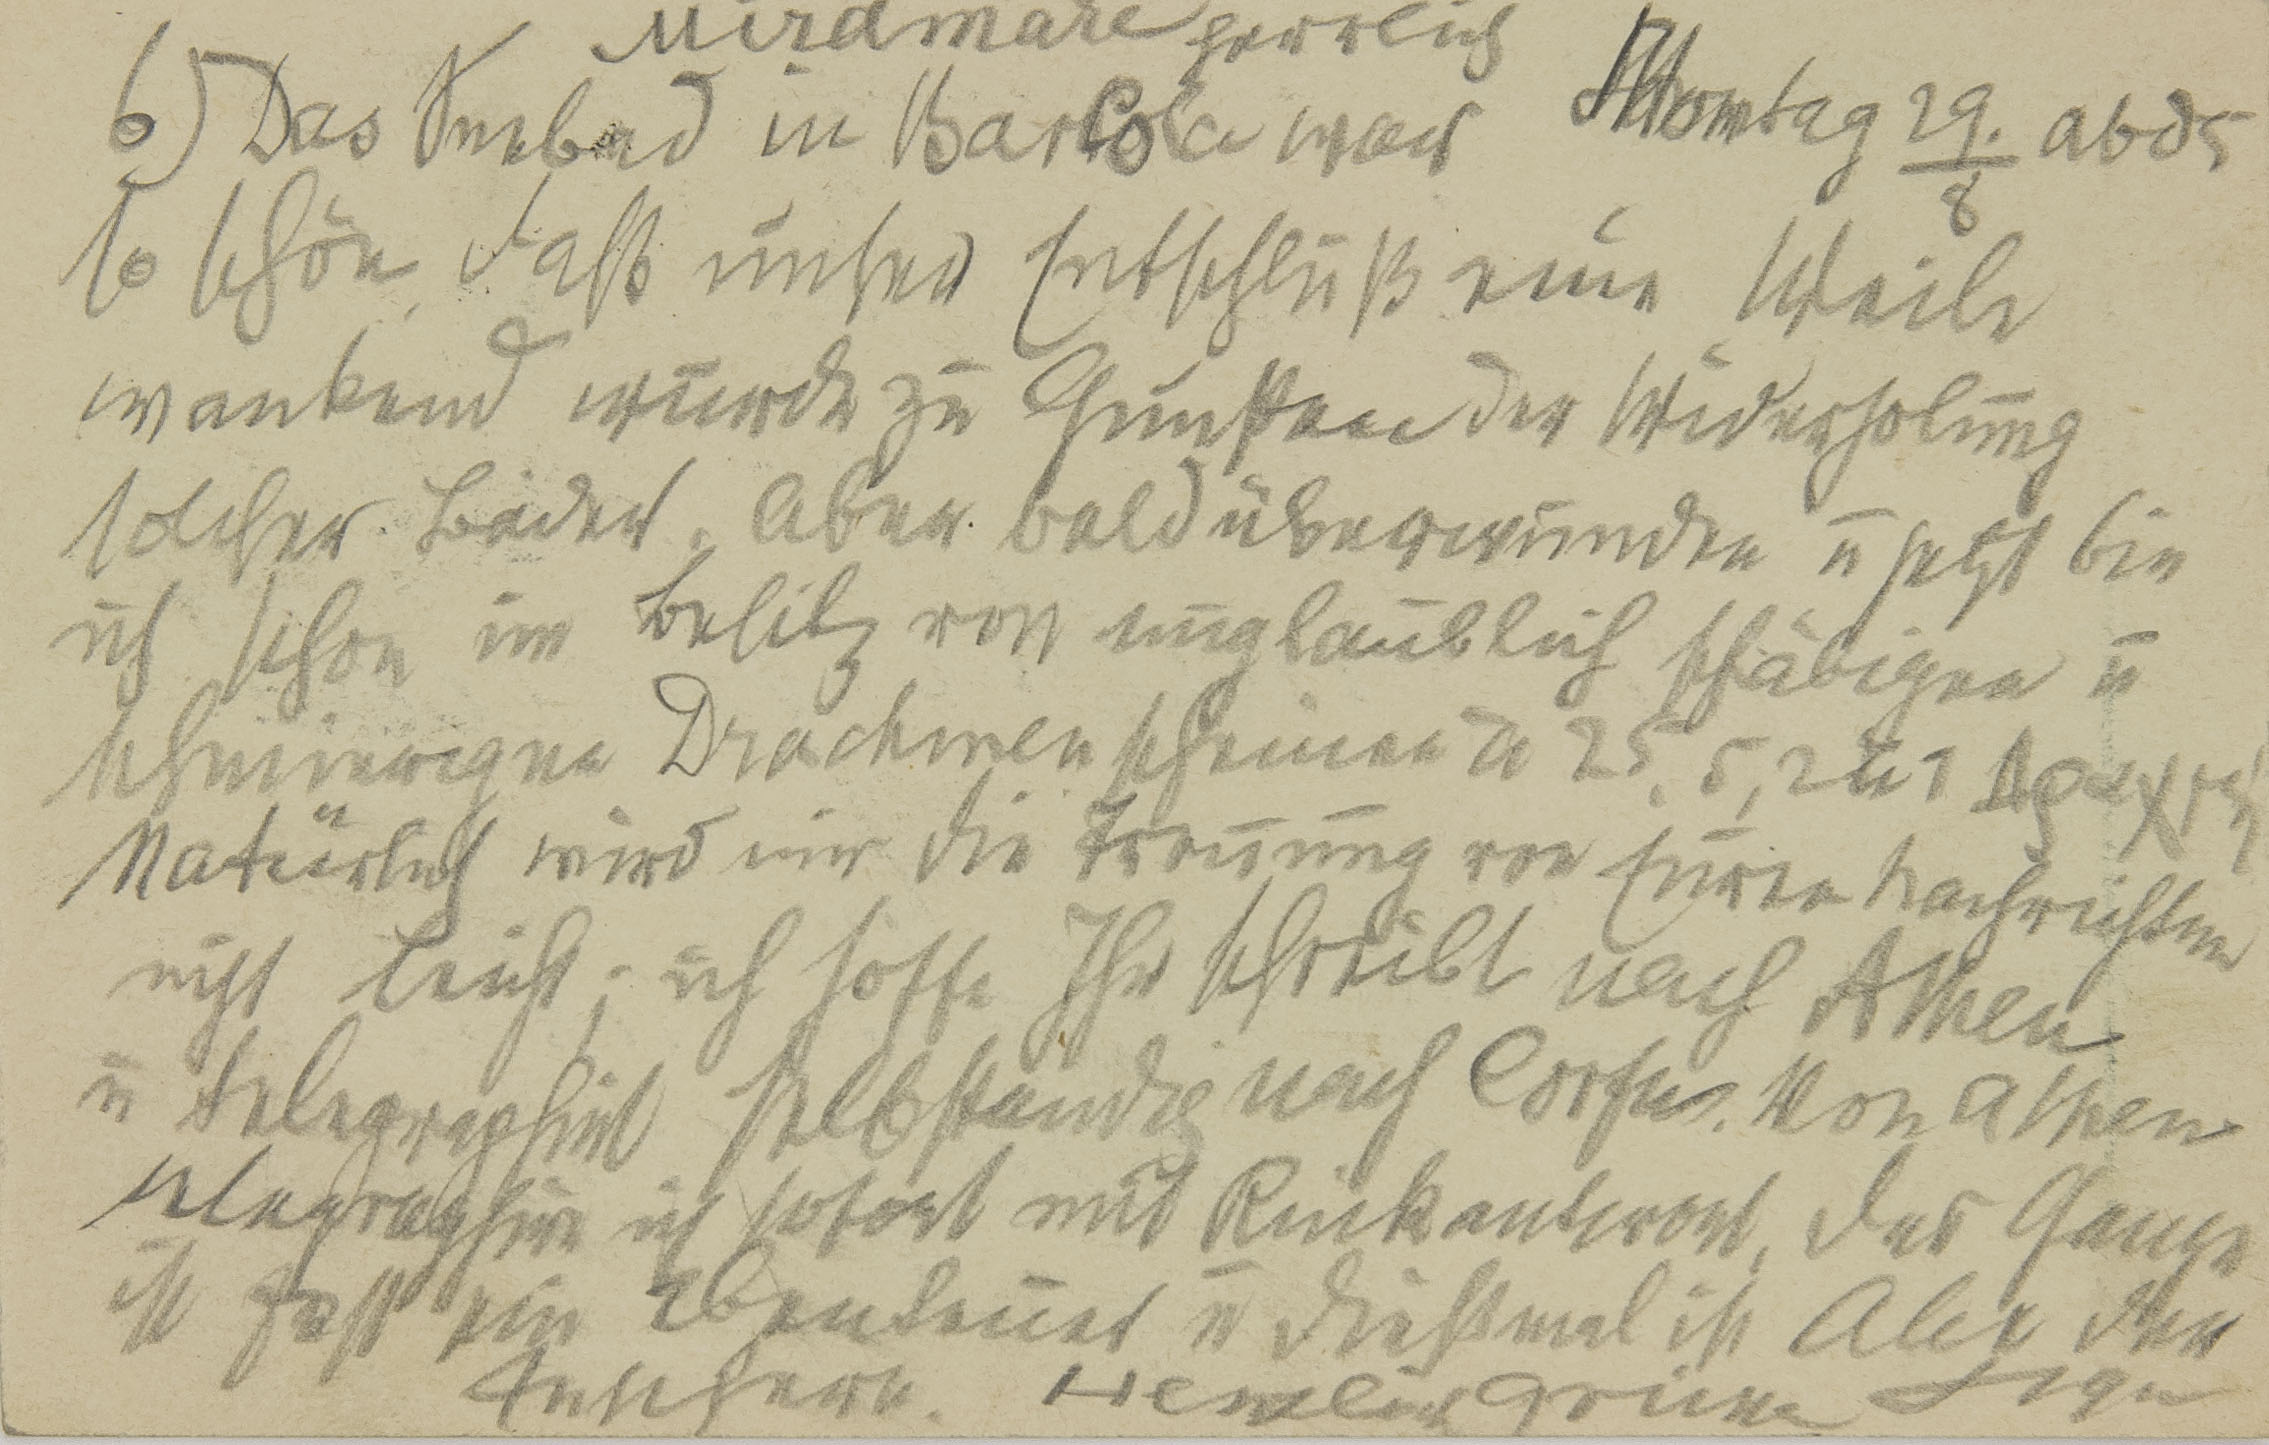 Miramare herrlich
6) Das Seebad in Barcola war Montag 29./8 abds
so schön, daß unser Entschluß eine Weile
wankend wurde zu Gunsten der Widerholung
solcher Bäder. Aber bald überwunden u jetzt bin
ich schon im Besitz von unglaublich schäbigen u
schmierigen Drachmenscheinen à 25, 5, 2 u 1
Natürlich wird mir die Trennung von Euren Nachrichten
nicht leicht; ich hoffe Ihr schreibt nach Athen
u telegraphirt selbständig nach Corfu. Von Athen
telegraphire ich sofort mit Rückantwort. Das Ganze
ist fast ein Abenteuer u dießmal ist Alex der
Sichere. Herzlich Grüße Sigm